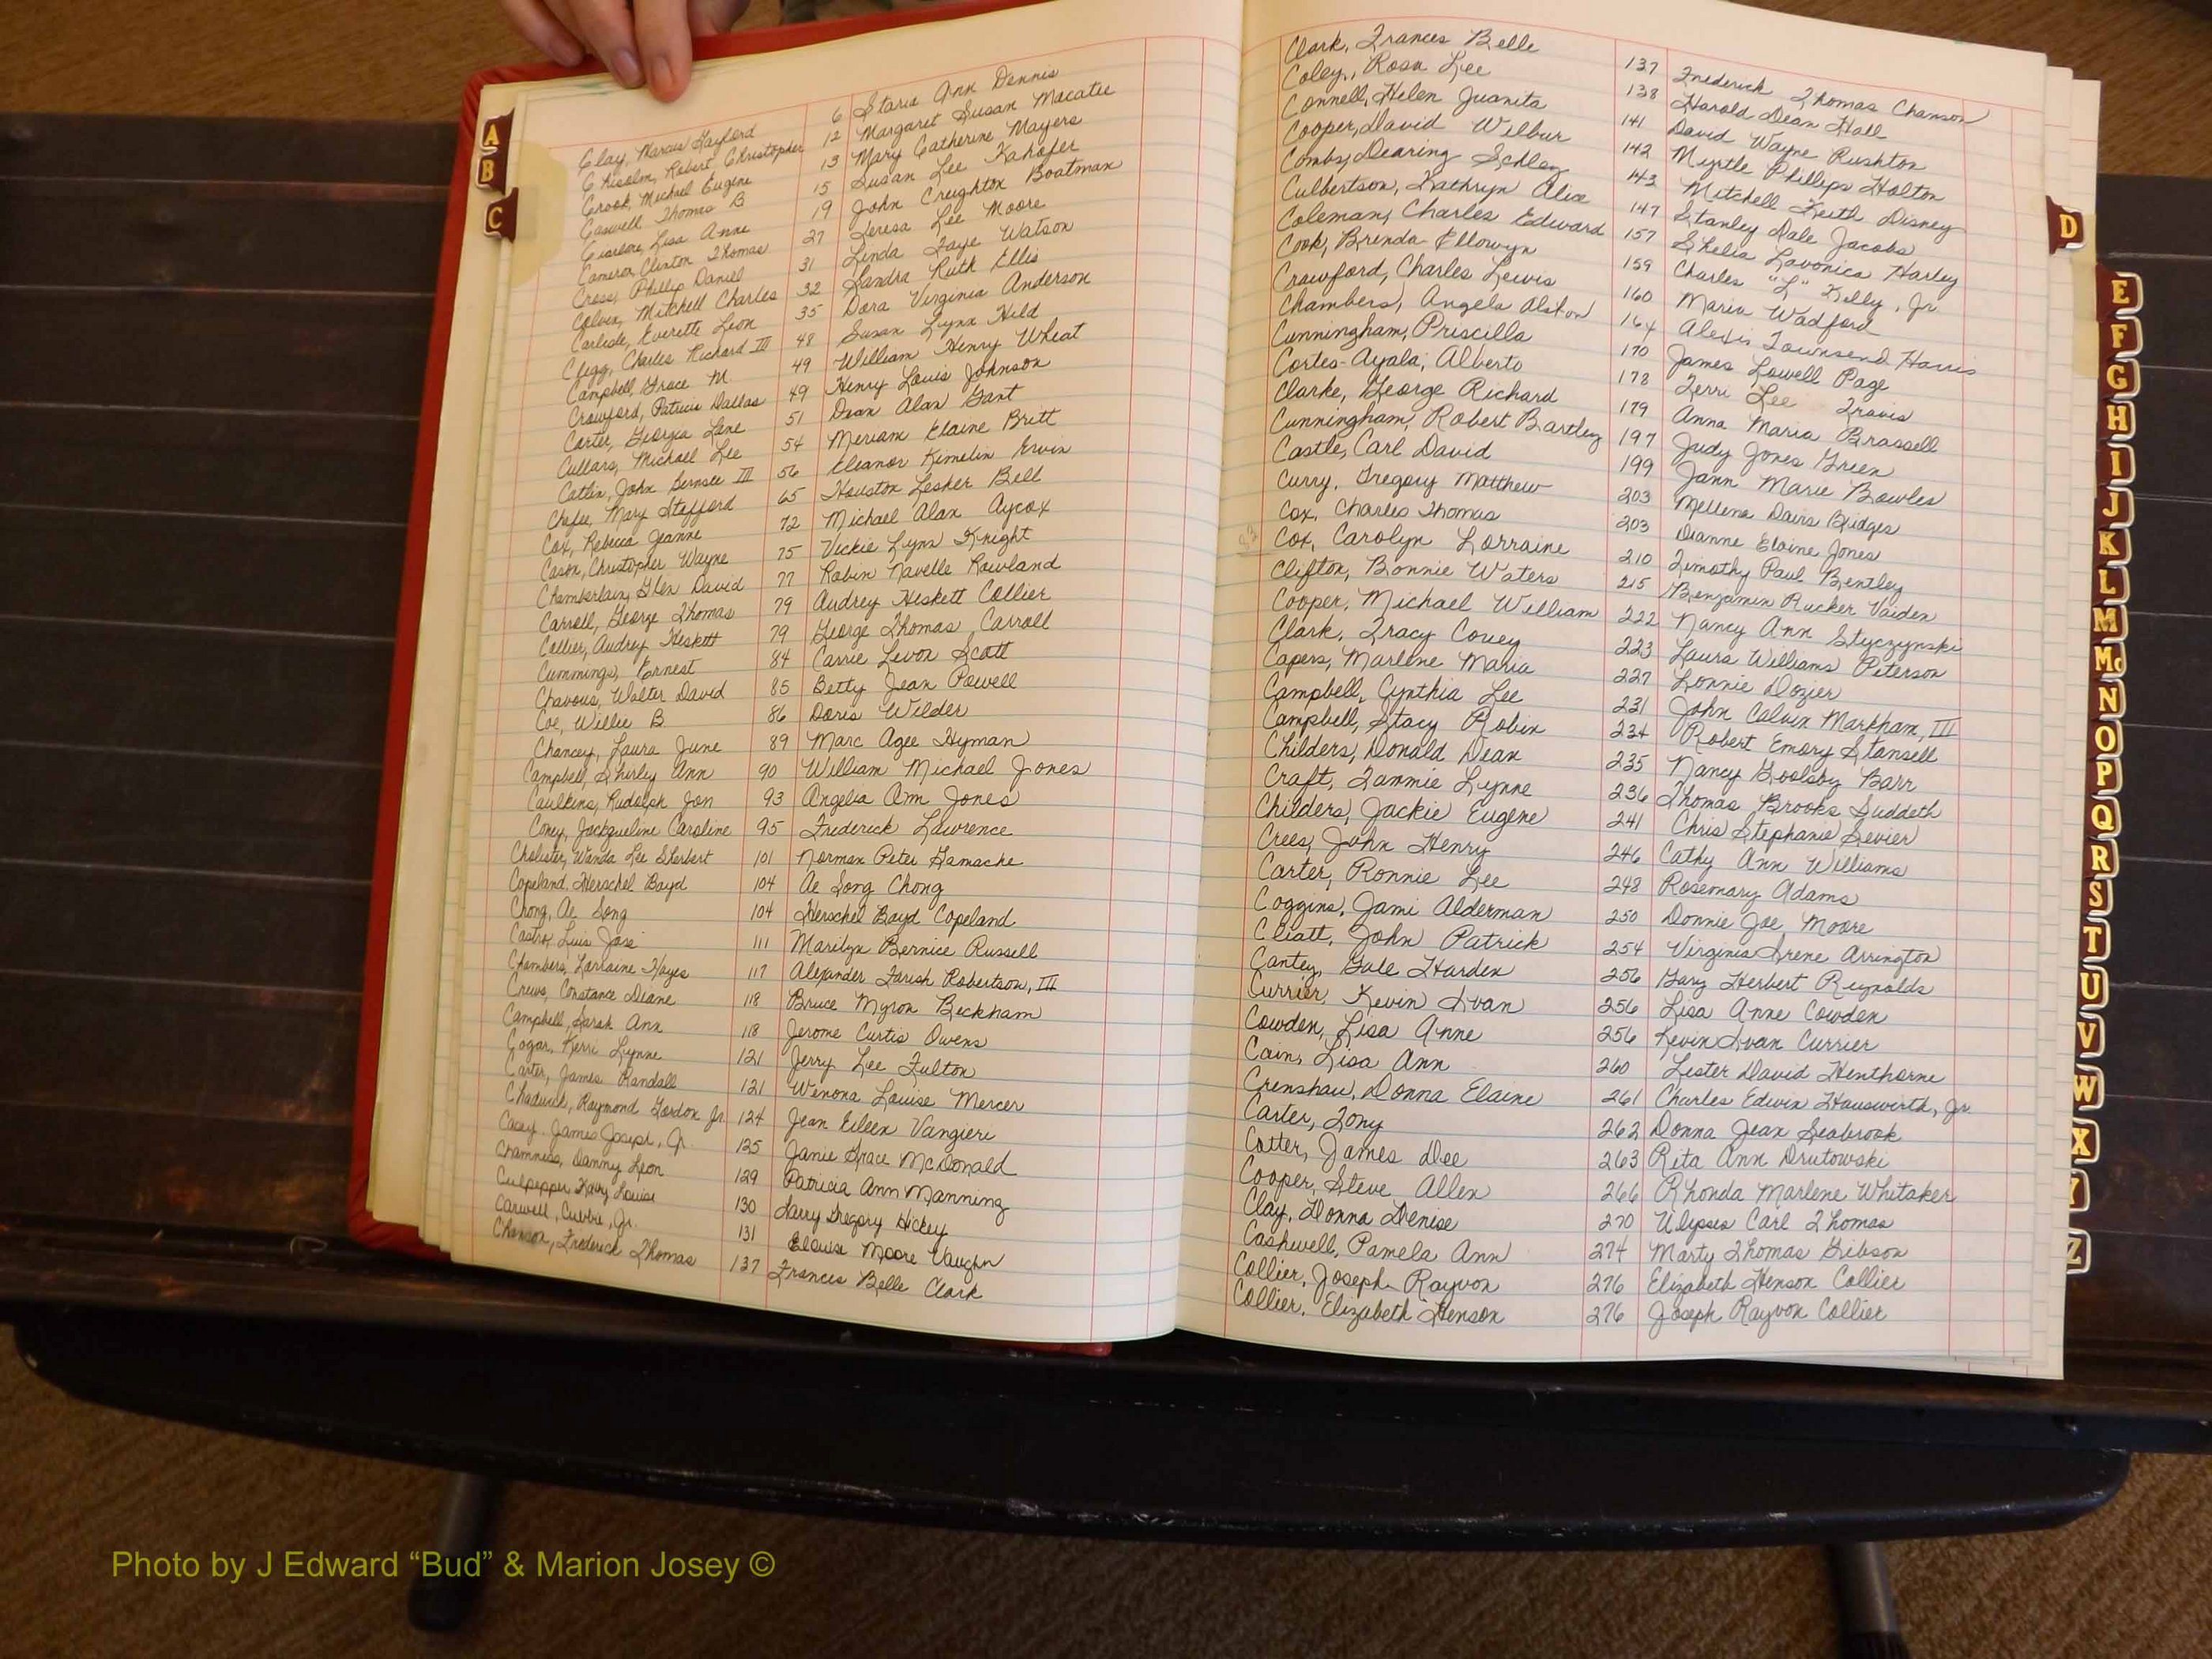 A
B
C
Clay, Marcus Gayford 6 Starie Ann Dennis
Chisolm, Robert Christopher 12 Margaret Susan Macatee
Crook, Michael Eugene 13 Mary Catherine Mayers
Caswell Thomas B 15 Susan Lee Kahofer
Lisa Anne 19 John Creighton Boatman
Cameron, Clinton Thomas 27 Teresa Lee Moore
Cross, Phillip Daniel 31 Linda Faye Watson
Colvin, Mitchell Charles 32 Sandra Ruth Ellis
Carlisle, Everette Leon 35 Dora Virginia Anderson
Clegg, Charles Richard III 48 Susan Lynn Hild
Campbell, Grace M. 49 William Henry Wheat
Crawford, Patricia Dallas 49 Henry Louis Johnson
Carter, Georgia Lane 51 Dean Alan Gant
Cullars, Michael Lee 54 Meriam Elaine Britt
Catlin, John Bernsee III 56 Eleanor Kimelin Ervin
Chafee, Mary Stafford 65 Houston Lesher Bell
Cox, Rebecca Jeanne 72 Michael Alan Aycox
Cason, Christopher Wayne 75 Vickie Lynn Knight
Chamberlain, Glen David 77 Robin Navelle Rowland
Carroll, George Thomas 79 Audrey Heskett Collier
Collier, Audrey Heskett 79 George Thomas Carroll
Cummings, Ernest 84 Carrie Levon Scott
Chavous, Walter David 85 Betty Jean Powell
Coe, Willie B 86 Doris Wilder
Chancey, Laura June 89 Marc Agee Hyman
Campbell, Shirley Ann 90 William Michael Jones
Caulkins, Rudolph Jon 93 Angelia Ann Jones
Coney, Jackqueline Caroline 95 Frederick Lawrence
Cholister, Wanda Lee Sherbert 101 Norman Peter Gamache
Copeland, Herschel Boyd 104 Ae Song Chong
Chong, Ae Song 104 Herschel Boyd Copeland
Castro, Luis Jose 111 Marilyn Bernice Russell
Chambers, Lorraine Hayes 117 Alexander Farish Robertson, III
Crews, Constance Diane 118 Bruce Myron Beckham
Campbell, Sarah Ann 118 Jerome Curtis Owens
Cogar, Kerri Lynne 121 Jerry Lee Fulton
Carter, James Randall 121 Winona Louise Mercer
Chadwick, Raymond Gordon Jr. 124 Jean Eileen Vangieri
Casey, James Joseph, Jr. 125 Janie Grace McDonald
Chamness, Danny Leon 129 Patricia Ann Manning
Culpepper, Kary Louise 130 Larry Gregory Hickey
Carwell, Cubbie, Jr. 131 Elouise Moore Vaughn
Chanson, Frederick Thomas 137 Frances Belle Clark
Clark, Frances Belle 137 Frederick Thomas Chanson
Coley, Rosa Lee 138 Harold Dean Hall
Connell, Helen Juanita 141 David Wayne Rushton
Cooper, David Wilbur 142 Myrtle Phillips Holton
Combs, Dearing Schley 143 Mitchell Keith Disney
Culbertson, Kathryn Alice 147 Stanley Dale Jacobs
Coleman, Charles Edward 157 Shelia Lavonica Harley
Cook, Brenda Ellowyn 159 Charles "L" Kelly, Jr.
Crawford, Charles Lewis 160 Maria Wadford
Chambers, Angela Alston 164 Alexis Townsend Harris
Cunningham, Priscilla 170 James Lowell Page
Cortes-Ayala, Alberto 178 Terri Lee Travis
Clarke, George Richard 179 Anna Maria Brassell
Cunningham, Robert Bartley 197 Judy Jones Green
Castle, Carl David 199 Jann Marie Bowles
Curry, Gregory Matthew 203 Mellena Davis Bridges
Cox, Charles Thomas 203 Dianne Elaine Jones
Cox, Carolyn Lorraine 210 Timothy Paul Bentley
Clifton, Bonnie Waters 215 Benjamin Rucker Vaiden
Cooper, Michael William 222 Nancy Ann Styczynski
Clark, Tracy Covey 223 Laura Williams Peterson
Capers, Marlene Maria 227 Lonnie Dozier
Campbell, Cynthia Lee 231 John Calvin Markham, III
Campbell, Stacy Robin 234 Robert Emory Stansell
Childers, Donald Dean 235 Nancy Goolsby Barr
Craft, Tammie Lynne 236 Thomas Brooks Suddeth
Childers, Jackie Eugene 241 Chris Stephanie Sevier
Crees, John Henry 246 Cathy Ann Williams
Carter, Ronnie Lee 248 Rosemary Adams
Coggins, Jami Alderman 250 Donnie Joe Moore
Cliatt, John Patrick 254 Virginia Irene Arrington
Cantey, Gale Harden 256 Gary Herbert Reynolds
Currier, Kevin Ivan 256 Lisa Anne Cowden
Cowden, Lisa Anne 256 Kevin Ivan Currier
Cain, Lisa Ann 260 Lester David Henthorne
Crenshaw, Donna Elaine 261 Charles Edwin Hauswirth, Jr.
Carter, Tony 262 Donna Jean Seabrook
Cotter, James Dee 263 Rita Ann Drutowski
Cooper, Steve Allen 266 Rhonda Marlene Whitaker
Clay, Donna Denise 270 Ulysses Carl Thomas
Cashwell, Pamela Ann 274 Marty Thomas Gibson
Collier, Joseph Rayvon 276 Elizabeth Henson Collier
Collier, Elizabeth Henson 276 Joseph Rayvon Collier
D
E
F
G
H
I
J
K
L
M
Mc
N
O
P
Q
R
S
T
U
V
W
X
Y
Z
Photo by J Edward “Bud” & Marion Josey ©